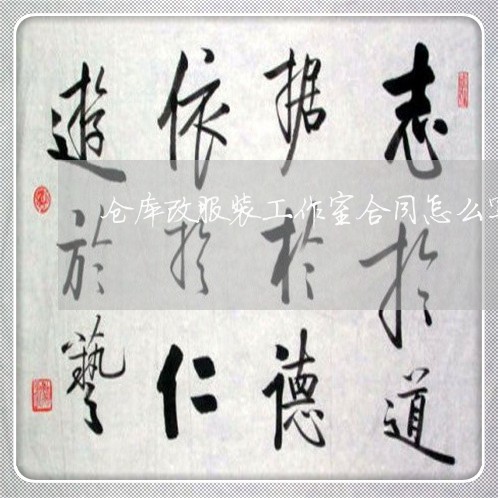 志於道
据於德
依於仁
遊於藝
仓库改服装工作室合同怎么